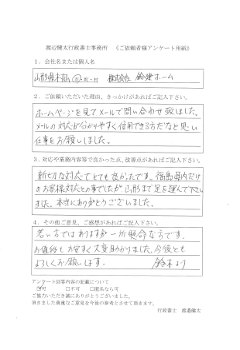 渡辺健太行政書士事務所 《ご依頼者様アンケート用紙》
1．会社名または個人名
山形県
ホーム
2．ご依頼いただいた理由、きっかけがあればご記入下さい。
ホームページを見てメールで問い合わせ致しました。
メールの対応が分かりやすく信用できる方だなと思い
仕事をお願いしました。
3．対応や業務内容等で良かった点、悪かった点があればご記入下さい。
親切な対応でとても良かったです。福島県内だけ
のお客様対応との事でしたが山形まで足を運んで下さい
ました。本当にありがとうございました。
4．その他ご意見、ご感想があればご記入下さい。
若い方ではありますが一所懸命な方です。
お値段も大変助かりました。今後とも
よろしくお願いします。
アンケート回答内容の記載について
可 □不可 □匿名なら可
ご協力いただき誠にありがとうございました。
頂きました貴重なご意見を今後の参考とさせて頂きます。
行政書士 渡邉健太